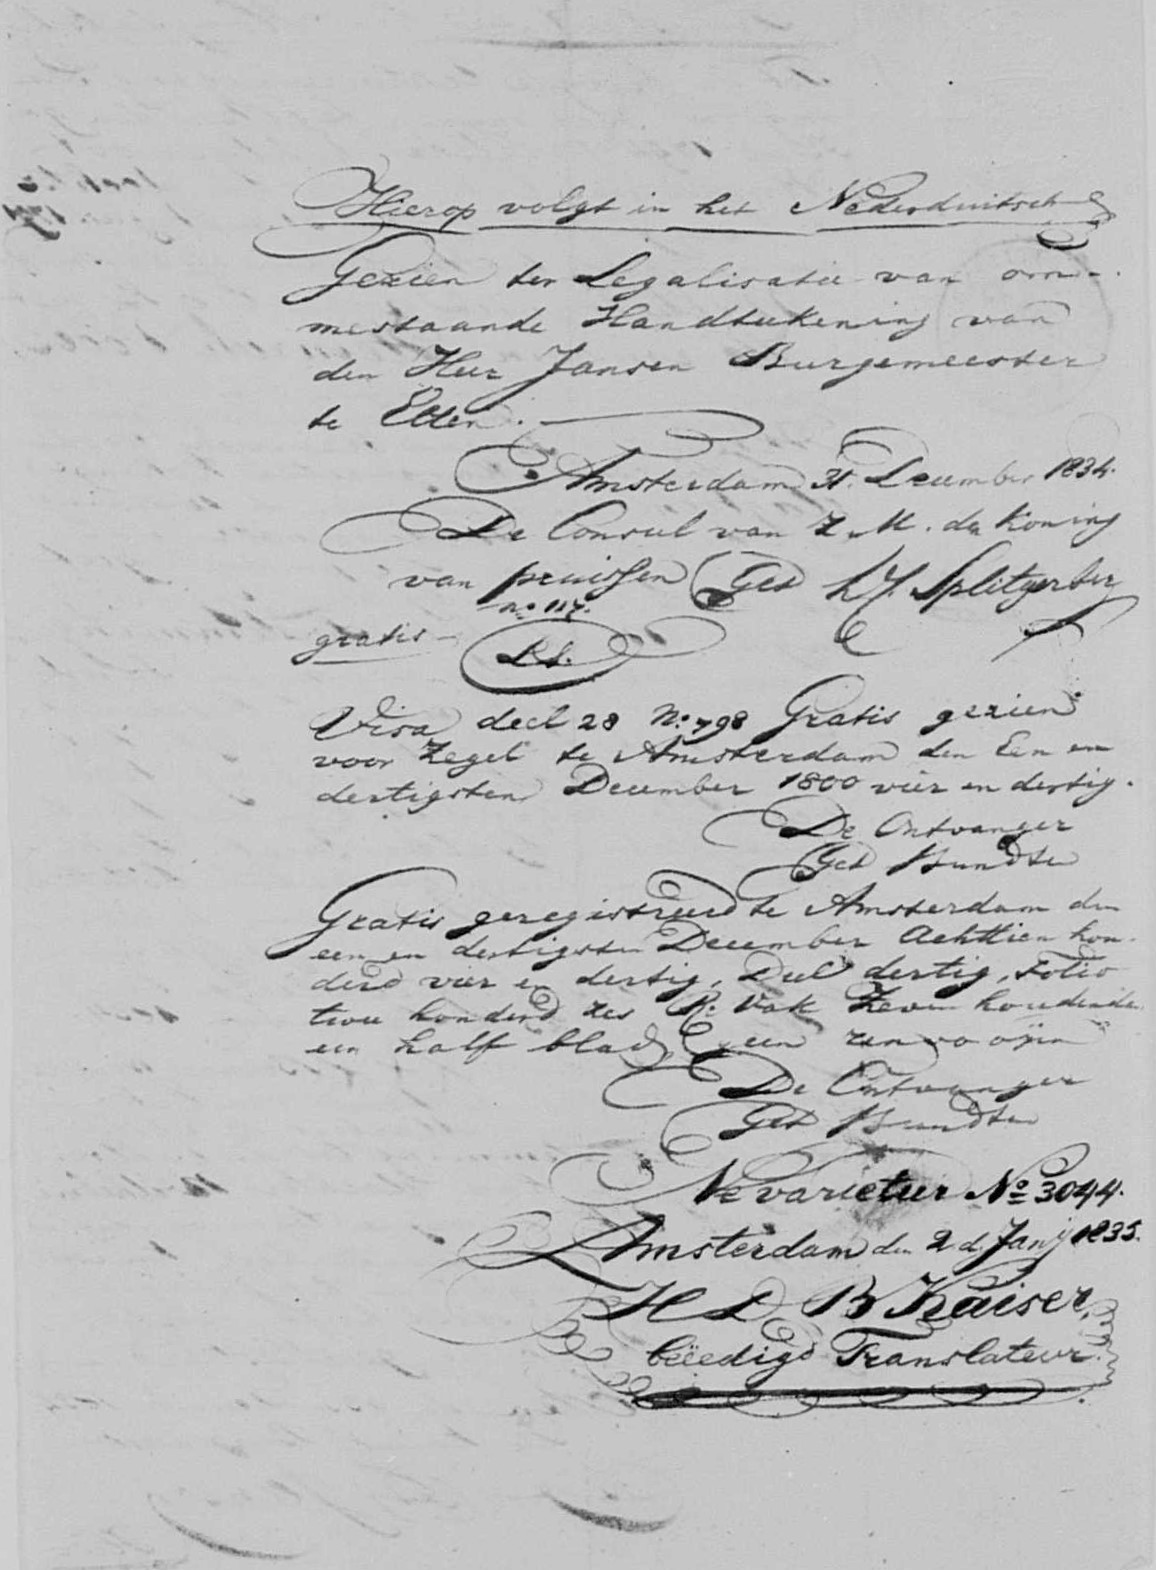 Hierop volgt in het Nederduitsch
Gezien ter Legalisatie van om-
mestaande Handtekening van
den Heer Jansen Burgemeester
te Elten.
Amsterdam 31. December 1834.
De Consul van Z. M. den Koning
van pruissen (Get Splitgerber
no 117.
gratis
L.S.
Visa deel 28 No 798 Gratis gezien
voor Zegel te Amsterdam den Een en
dertigsten December 1800 vier en dertig.
De Ontvanger
Get Bundten
Gratis geregistreerd te Amsterdam den
een en dertigsten December Achttien hon-
derd vier en dertig, Deel dertig, Folio
twee honderd zes R. Vak Zeven houdende
een half blad, geen renvooijen
De Ontvanger
Get Bundten
Ne varietur No 3044.
Amsterdam den 2 d. Janij 1835.
H D B Kaiser,
beëedigd Translateur.